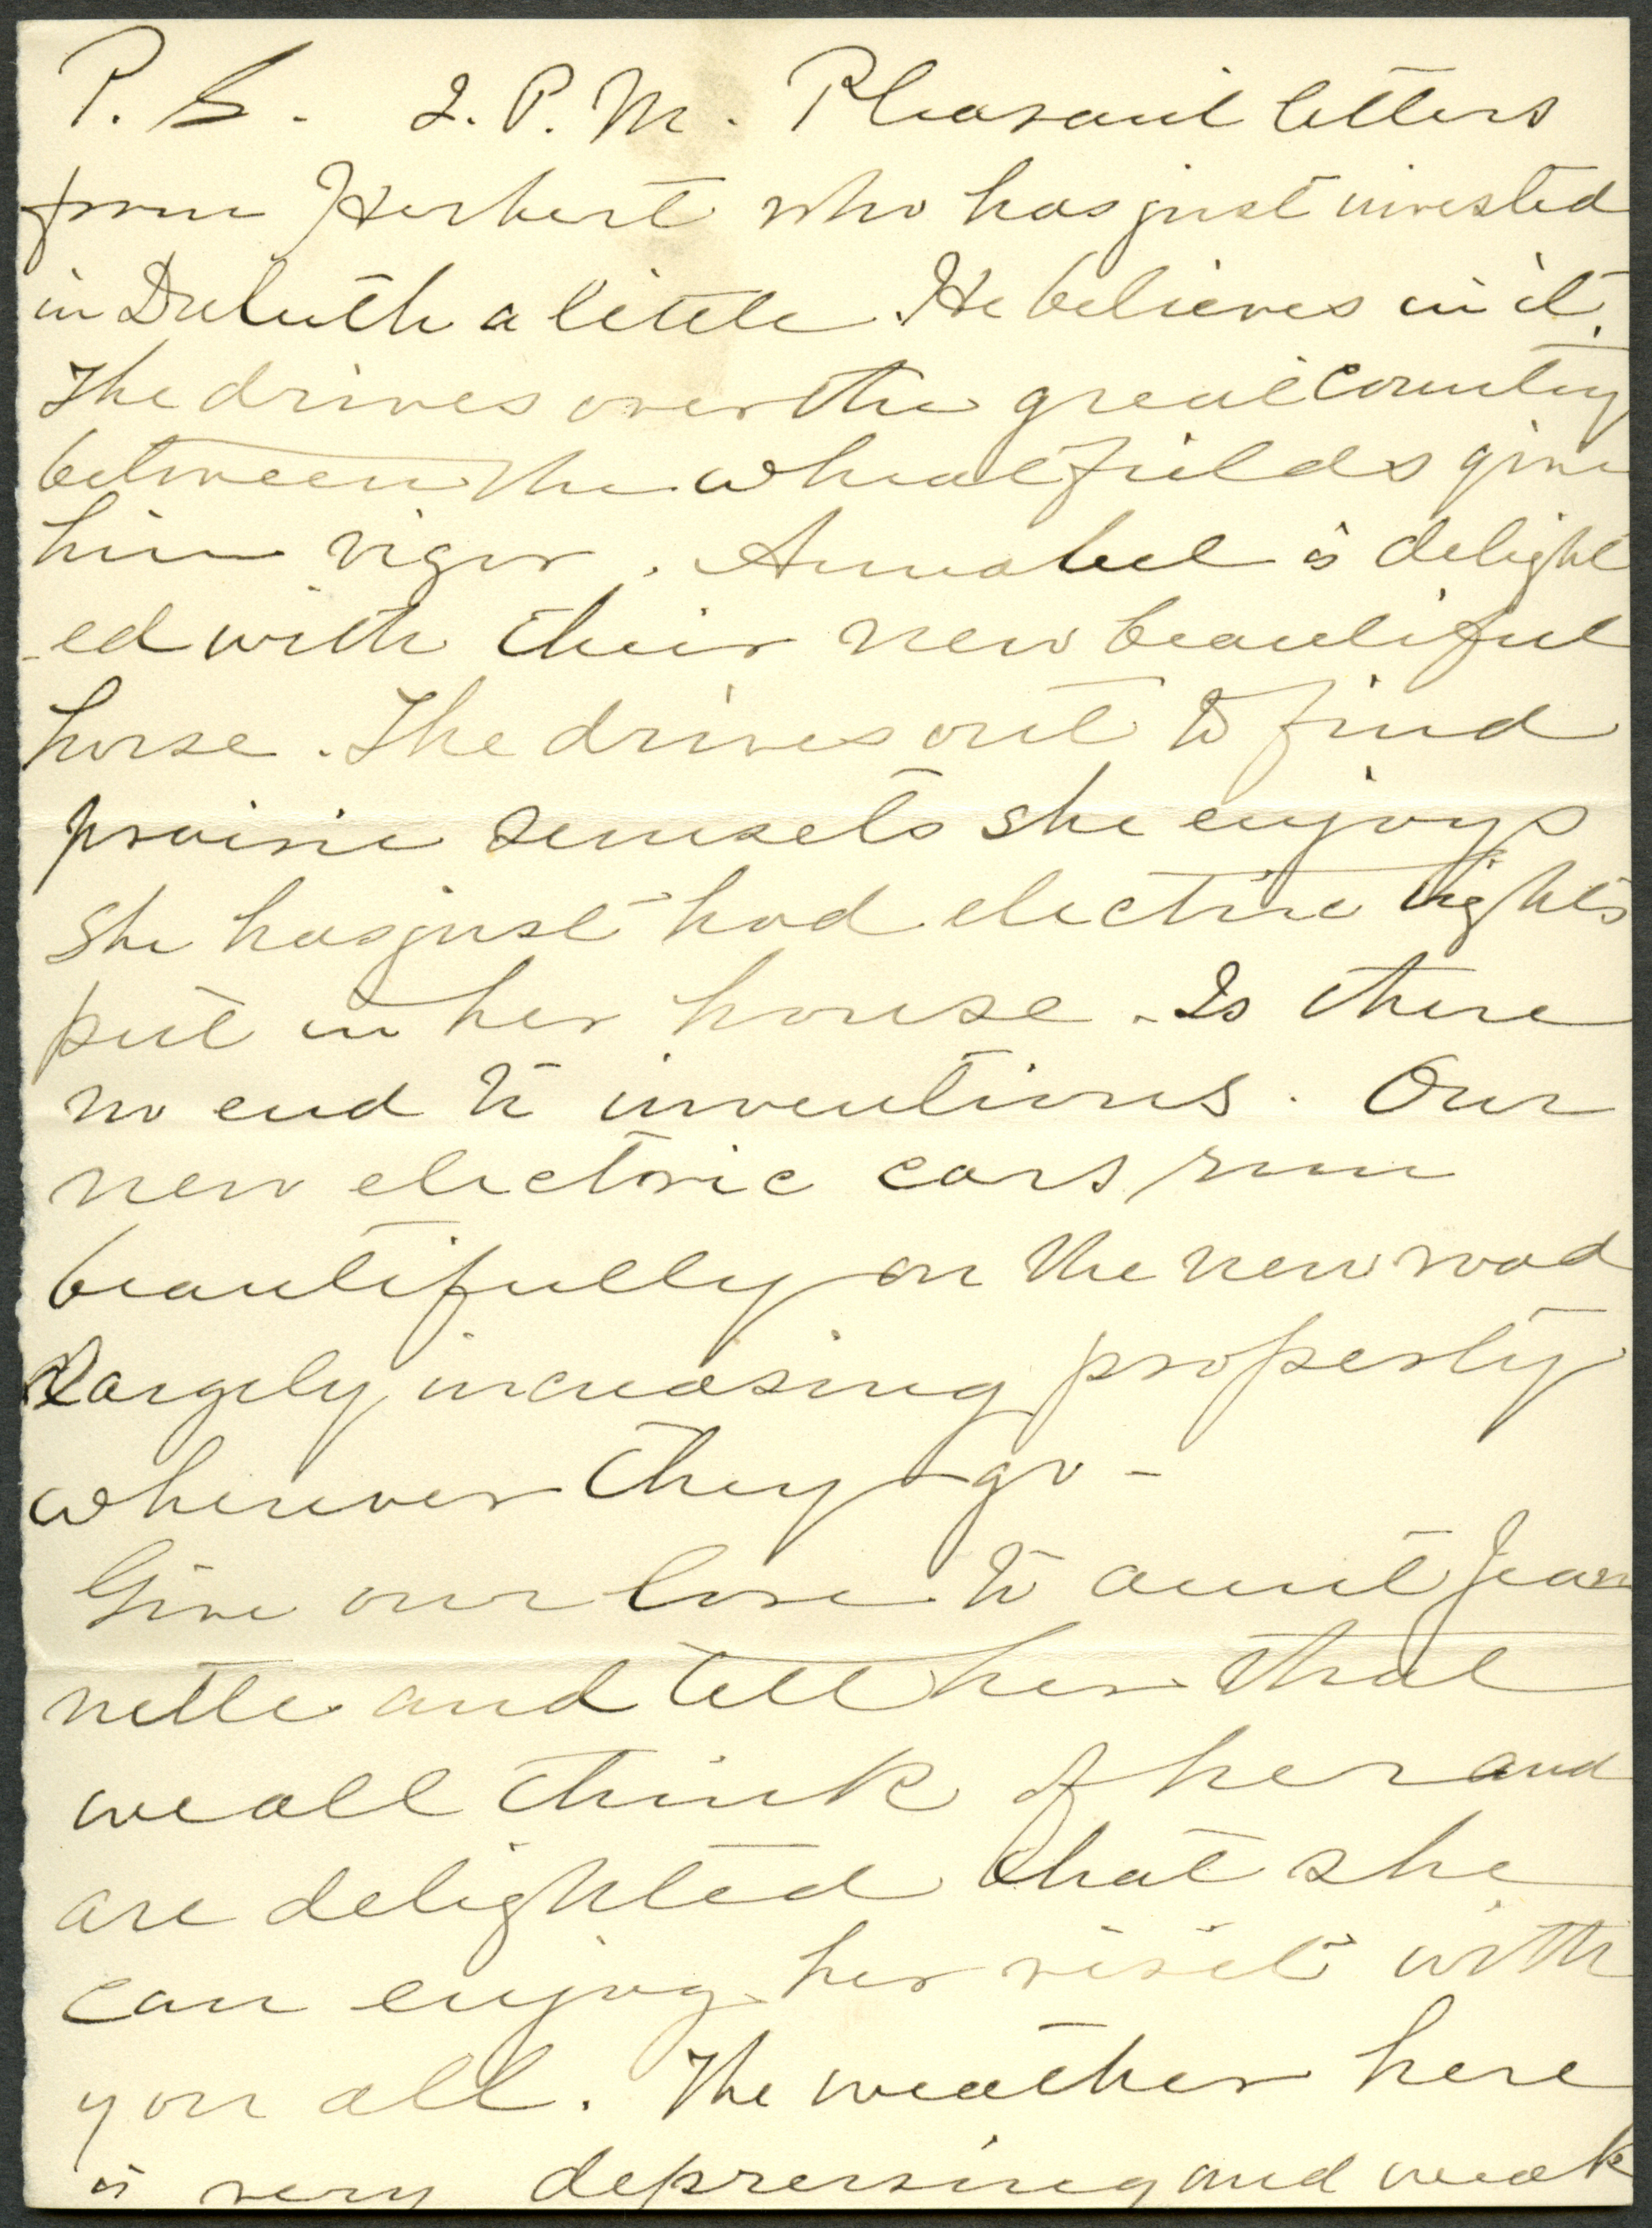 P. S. 2. P. M. Pleasant letters
from Herbert who has just invested
in Duluth a little. He believes in it.
The drives over the great country
between the wheat fields give
him vigor. Annabel is delight
-ed with their new beautiful
horse. The drives out to find
prairie sunsets she enjoys
She has just had electric lights
put in her house. Is there
no end to inventions. Our
new electric cars run
beautifully on the new road
largely increasing property
wherever they go -
Give our love to aunt Jean
nette and tell her that
we all think of her and
are delighted that she
can enjoy her visit with
you all. The weather here
is very depressing and weak